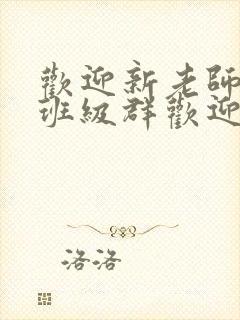 歡迎新老師
班級群歡迎
洛洛